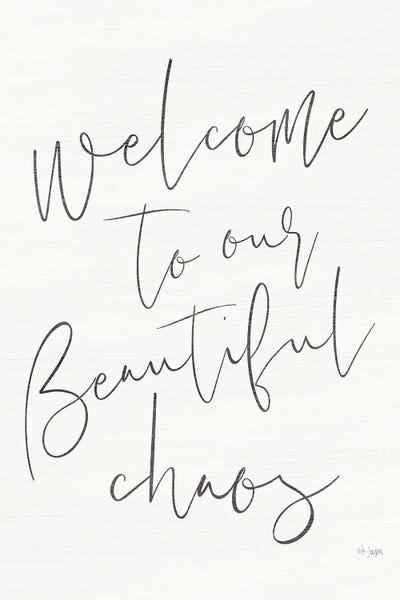 Welcome
to our
Beautiful
chaos